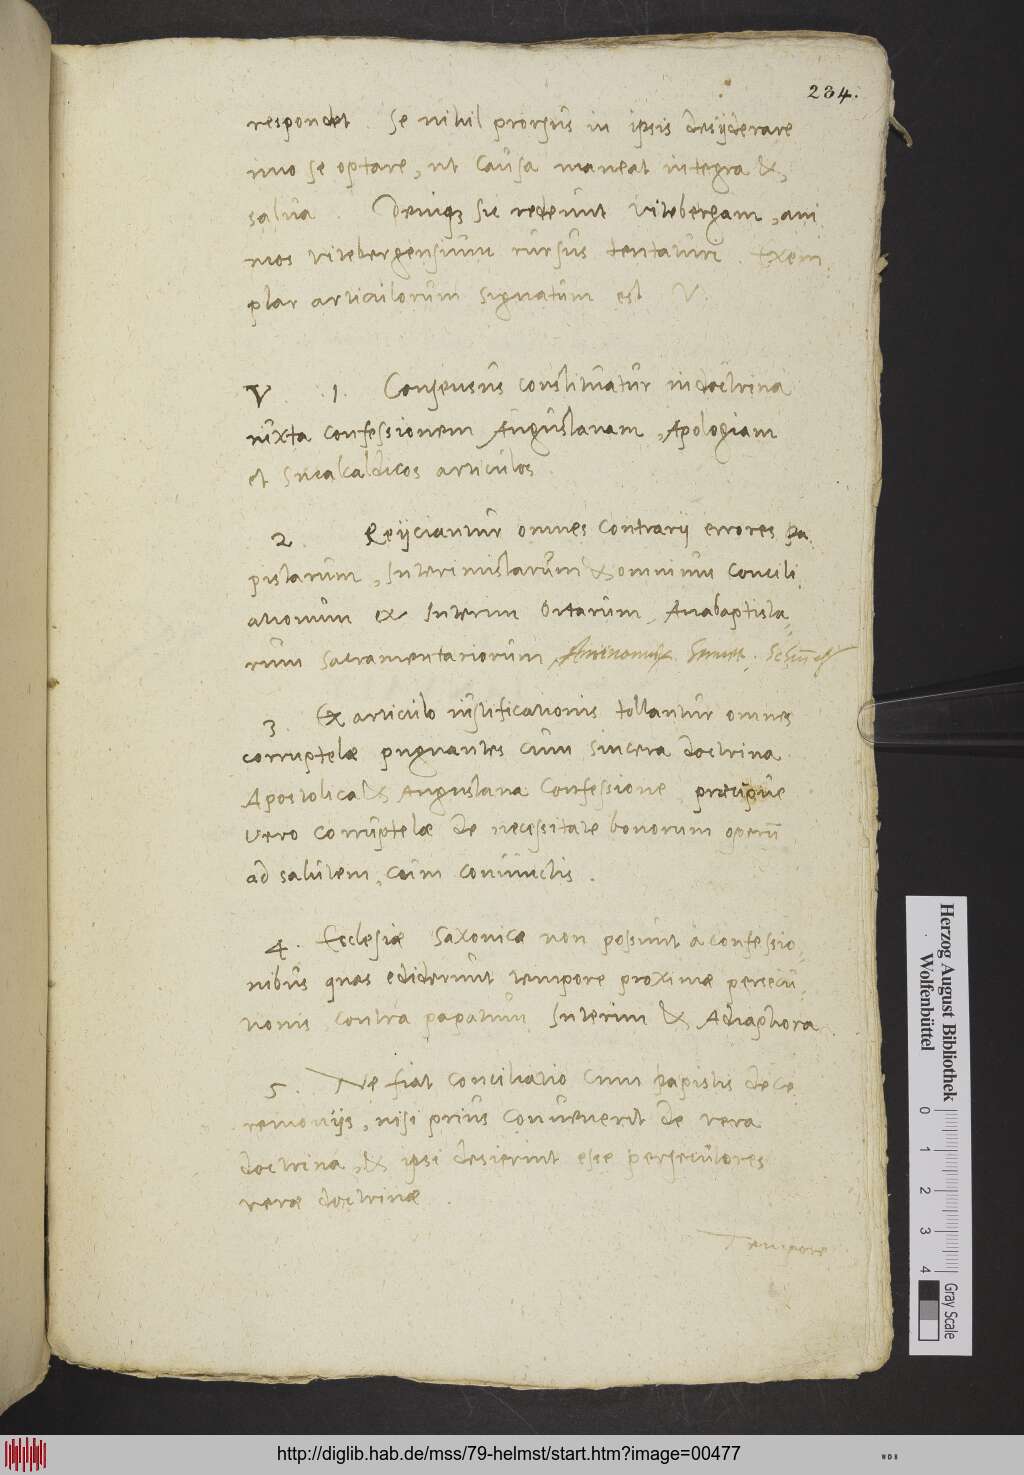 234.
respondet. Se nihil prorsus in ipsis desyderare
imo se optare, ut causa maneat integra &
salva. Deniq; sic redeunt Vitebergam, ani
mos Vitebergensium rursus tentaturi. Exem
plar articulorum signatum est V
V. 1. Consensus constituatur in doctrina
iuxta confessionem Augustanam, Apologiam
et Smalcaldicos articulos.
2. Reijciantur omnes contrarij errores pa
pistarum, Interimistarum & omnium concili
ationum ex Interim ortarum, Anabaptista-
rum sacramentariorum,
3. Ex articulo iustificationis tollantur omnes
corruptelæ pugnantes cum sincera doctrina
Apostolica & Augustana Confessione, præcipue
vero corruptelæ de necessitate bonorum operū
ad salutem, cum coniunctis.
4. Ecclesiæ Saxonicæ non possunt à confessio-
nibus quas ediderunt tempore proximæ persecu-
tionis contra papatum Interim & Adiaphora
5. Ne fiat conciliatio cum papistis de ce
remonijs, nisi prius convenerit de vera
doctrina, & ipsi desierint esse persecutores
veræ doctrinæ.
Tempore
Herzog August Bibliothek
Wolfenbüttel
0 1 2 3 4
Gray Scale
http://diglib.hab.de/mss/79-helmst/start.htm?image=00477
WDB